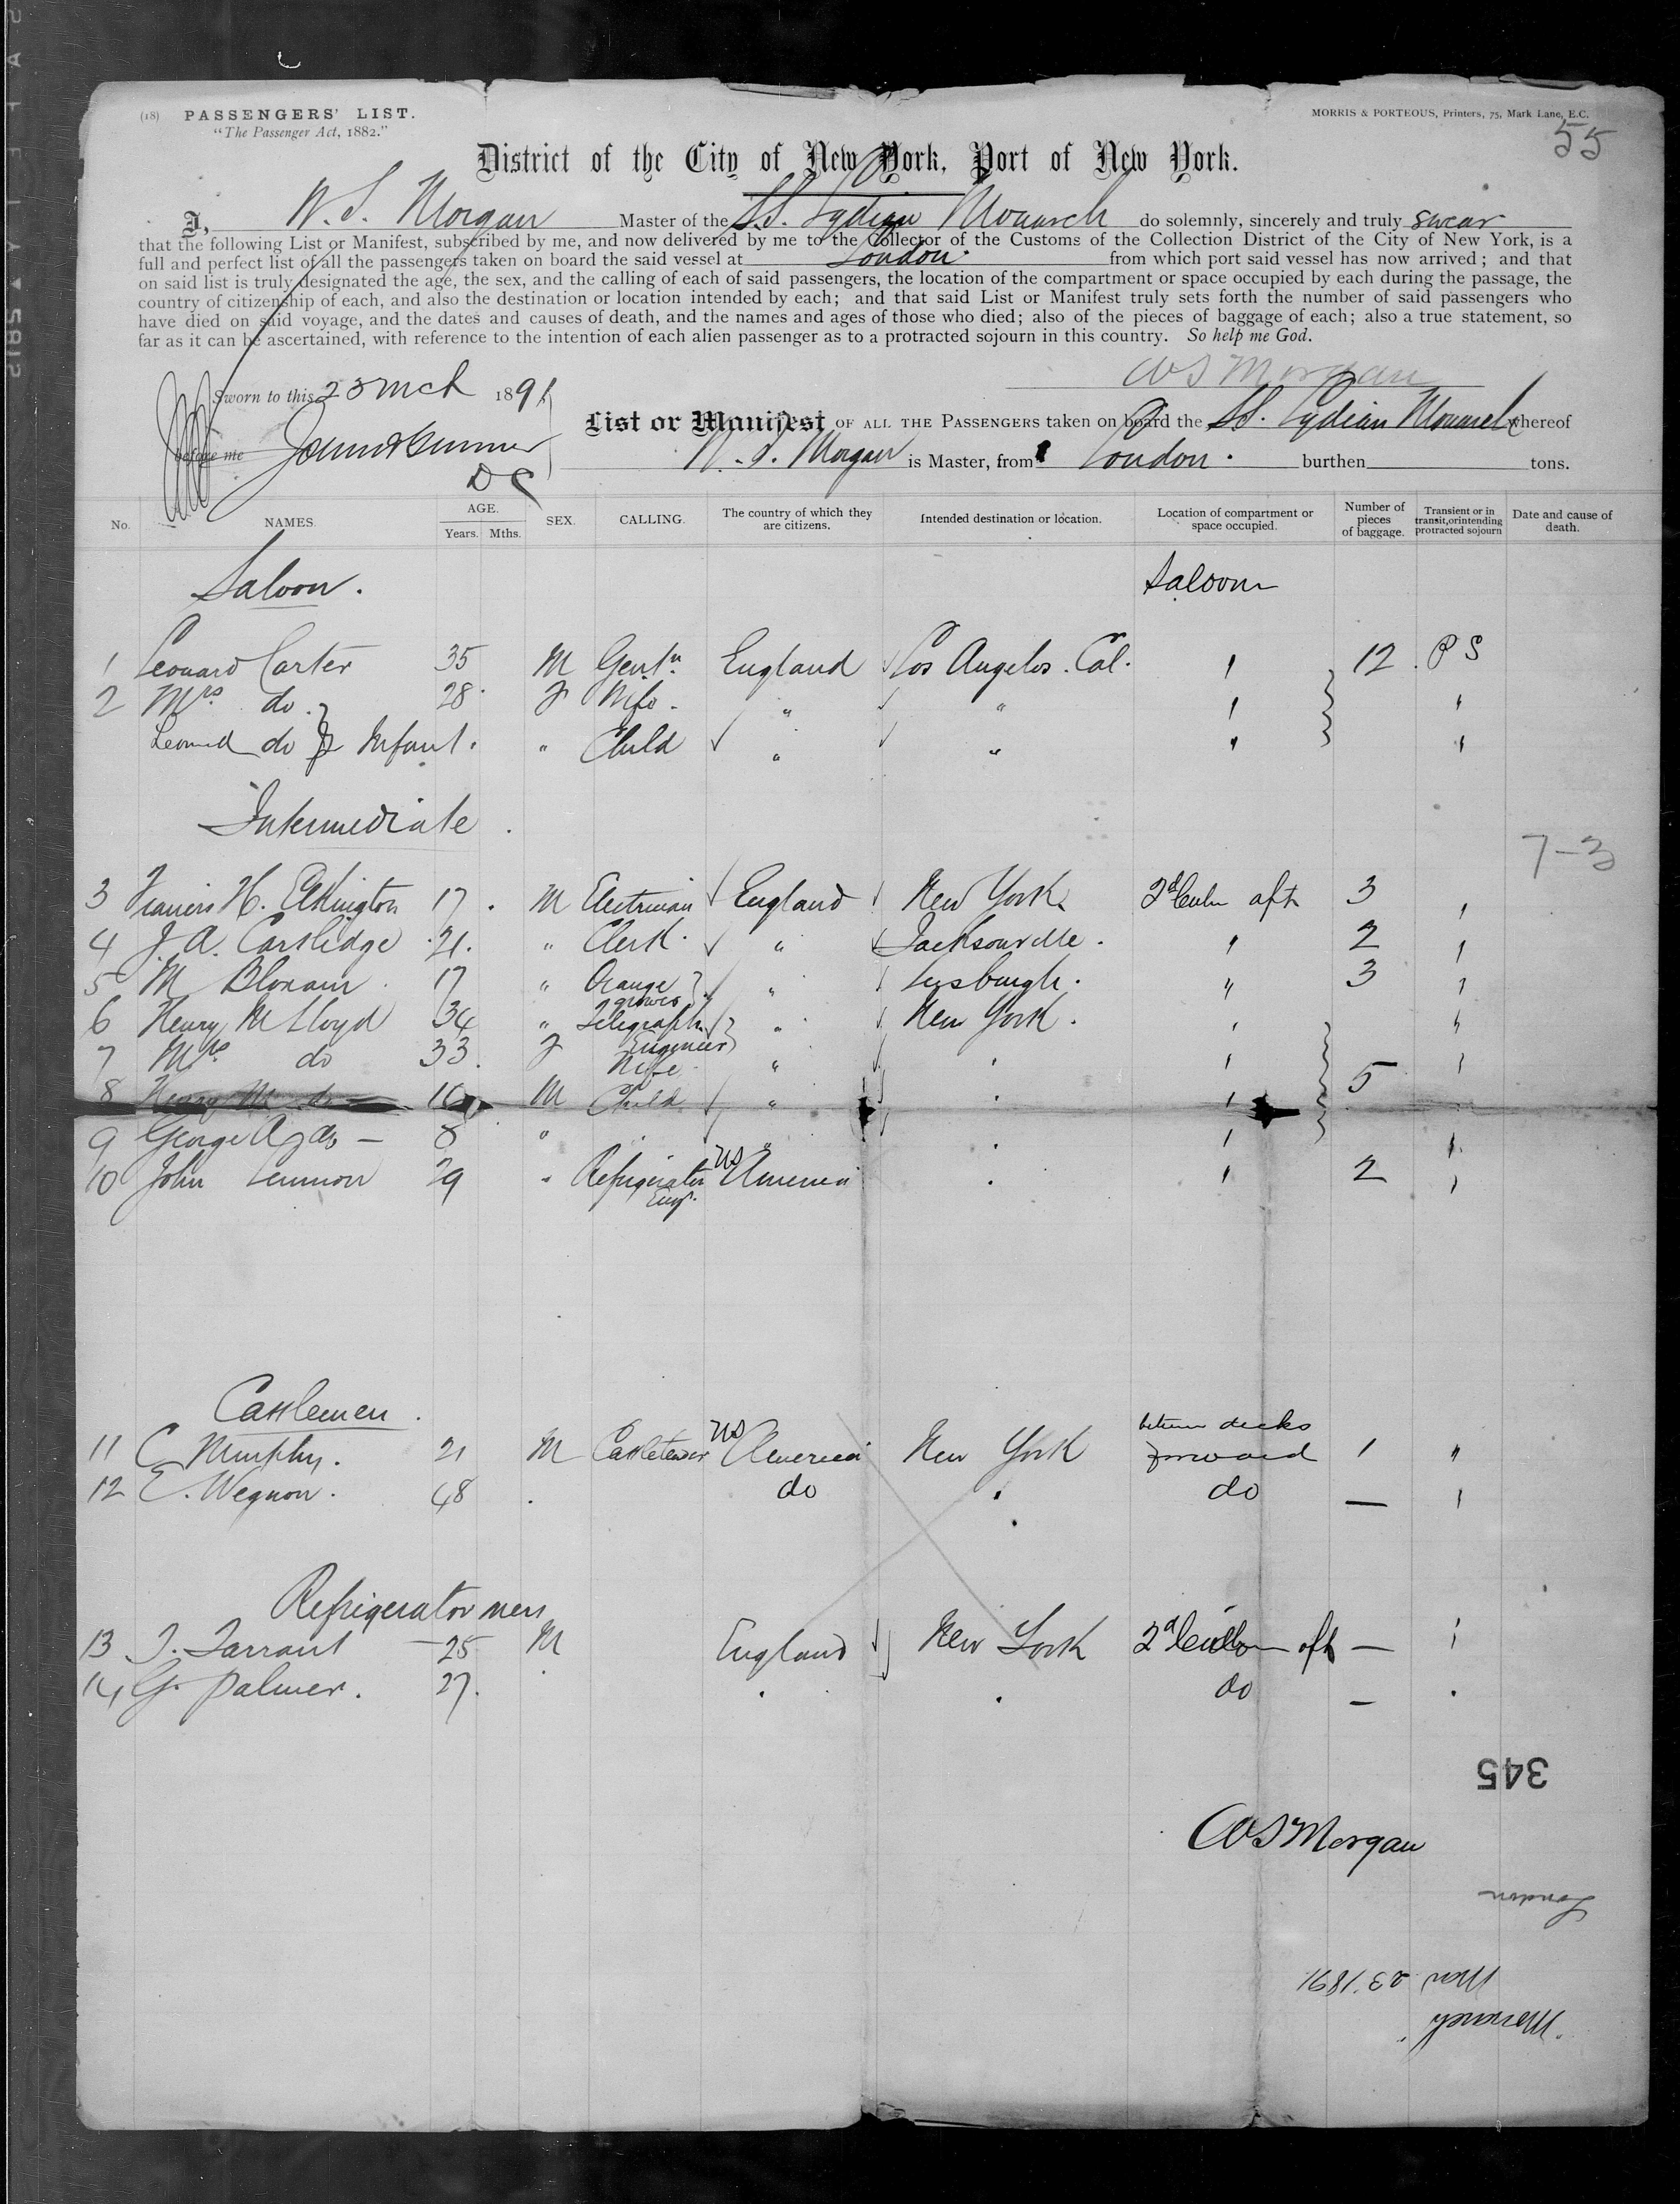 (18) PASSENGERS' LIST.
"The Passenger Act, 1882."
MORRIS & PORTEOUS, Printers, 75, Mark Lane, E.C.
55
District of the City of New York, Port of New York.
I, W. S. Morgan Master of the S.S. Lydian Monarch do solemnly, sincerely and truly swear
that the following List or Manifest, subscribed by me, and now delivered by me to the Collector of the Customs of the Collection District of the City of New York, is a
full and perfect list of all the passengers taken on board the said vessel at London from which port said vessel has now arrived; and that
on said list is truly designated the age, the sex, and the calling of each of said passengers, the location of the compartment or space occupied by each during the passage, the
country of citizenship of each, and also the destination or location intended by each; and that said List or Manifest truly sets forth the number of said passengers who
have died on said voyage, and the dates and causes of death, and the names and ages of those who died; also of the pieces of baggage of each; also a true statement, so
far as it can be ascertained, with reference to the intention of each alien passenger as to a protracted sojourn in this country. So help me God.
W S Morgan
Sworn to this 23 Mch 1891
before me
D C
List or Manifest OF ALL THE PASSENGERS taken on board the SS. Lydian Monarch whereof
W. S. Morgan is Master, from London. burthen tons.
No. NAMES. AGE. Years. Mths. SEX. CALLING. The country of which they are citizens. Intended destination or location. Location of compartment or space occupied. Number of pieces of baggage. Transient or in transit, or intending protracted sojourn Date and cause of death.
Saloon. Saloon
1 Leonard Carter 35 M Gentn. England Los Angelos. Cal. " 12 P S
2 Mrs. do. 28 F Wife. " " " "
Leonard do Infant. " Child " " " "
Intermediate
7-3
3 Francis H. Elkington 17 M Electrician England New York 2d Cabn aft 3 "
4 J. A. Cartlidge 21. " Clerk " Jacksonville. " 2 "
5 M Bloxam 17 " Orange grower " Leesburgh. " 3 "
6 Henry M Lloyd 34 " Telegraph Engineer " New York. " "
7 Mrs do 33. F Wife " " " "
8 Henry M do 10 M Child " " " 5
9 George A do — 8 " " " " "
10 John Lennon 29 " Refrigerator Engr. US America " " 2 "
Cattlemen
11 C Murphy. 21 M Cattletender US America New York between decks forward 1 "
12 E. Wegnon. 48 " do " do — "
Refrigerator men
13 T. Tarrant — 25 M England New York 2d Cabin aft — "
14 G. Palmer. 27. " " " do — "
345
W S Morgan
London
Mch 23. 1891.
Monarch